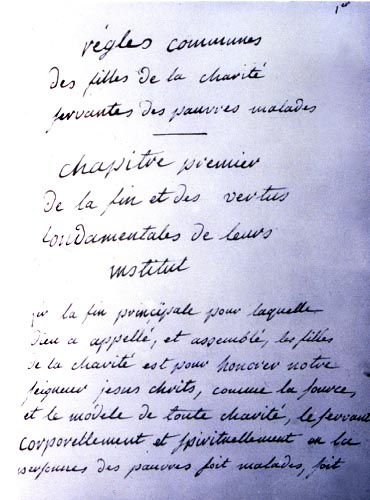 1er
régles communes
des filles de la charité
servantes des pauvres malades
chapitre premier
de la fin et des vertus
fondamentales de leurs
institut
la fin principale pour laquelle
Dieu a appellé, et assemblé, les filles
de la charité est pour honorer notre
seigneur jesus chrits, comme la source,
et le modéle de toute charité, le servant
corporellement et spirituellement en la
personnes des pauvres soit malades, soit